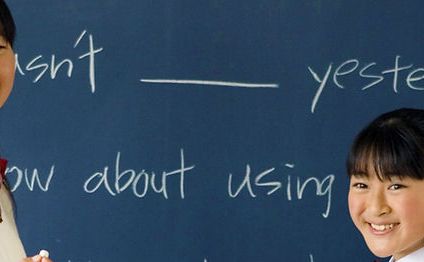 asn't ____ yeste
ow about using